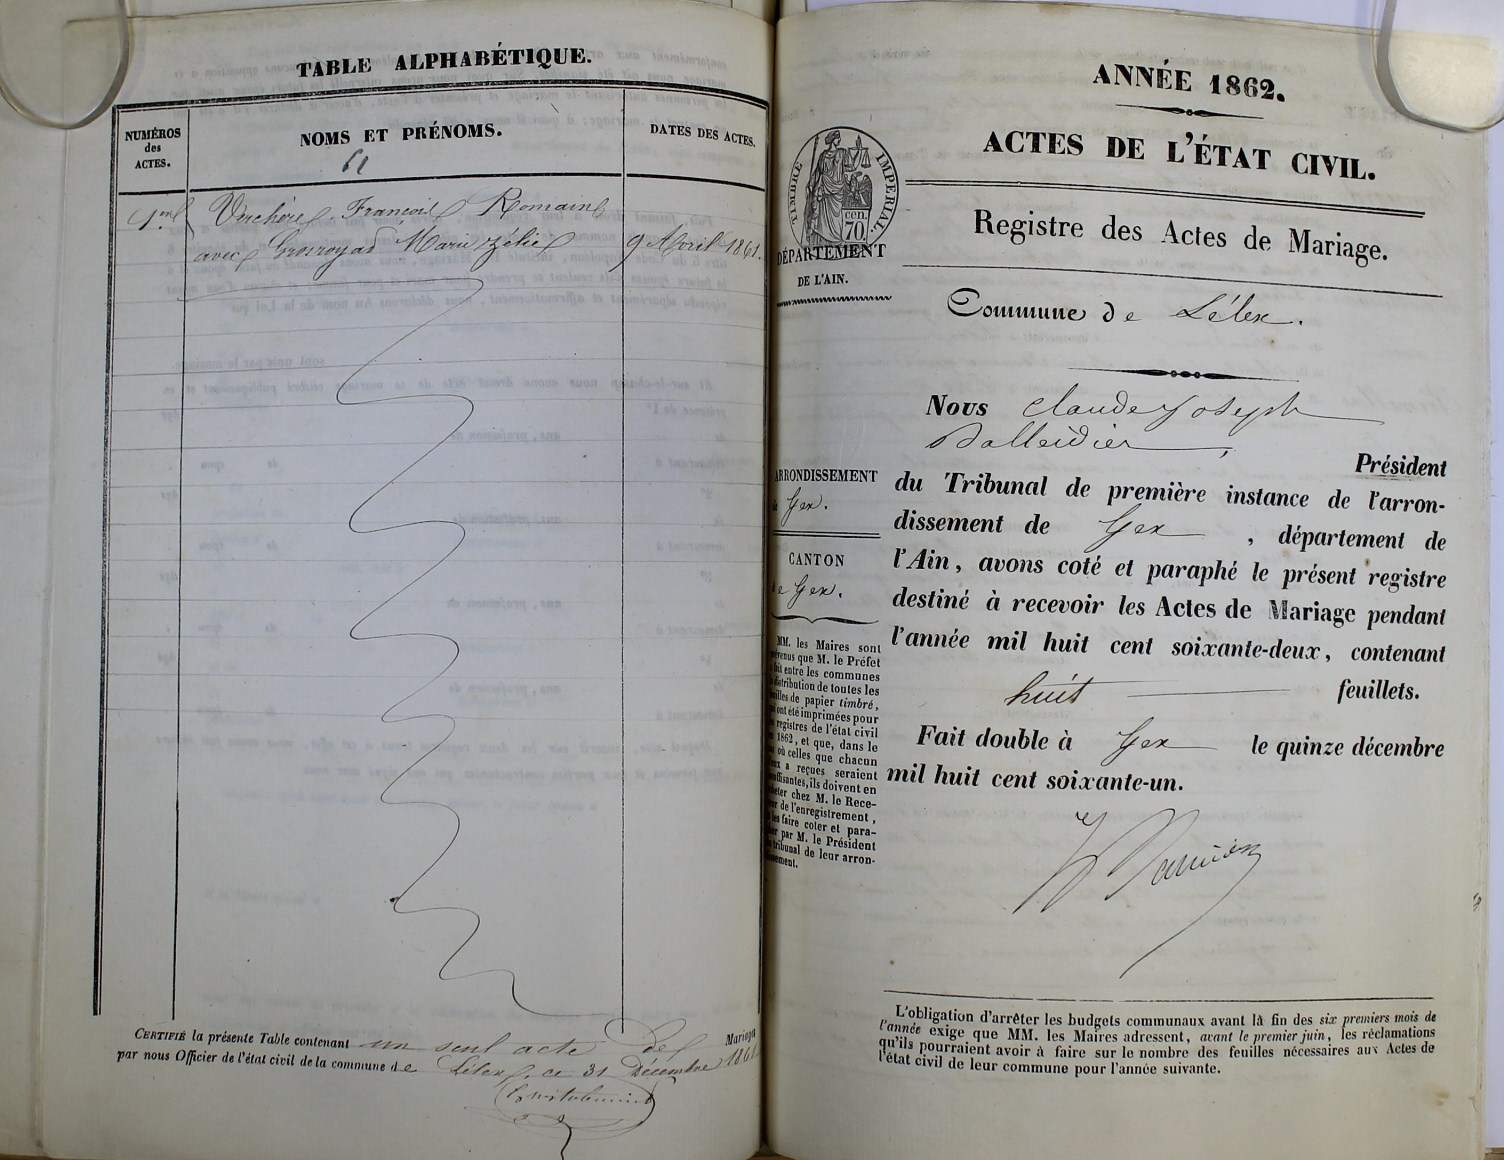 TABLE ALPHABÉTIQUE.
NUMÉROS
des
ACTES.
NOMS ET PRÉNOMS.
DATES DES ACTES.
61
1er
Verchère François Romain
avec Grosroyad Marie Zélie
9 Avril 1861.
CERTIFIÉ la présente Table contenant un seul acte de Mariages
par nous Officier de l'état civil de la commune de Lélex, ce 31 Décembre 1861
ANNÉE 1862.
ACTES DE L'ÉTAT CIVIL.
TIMBRE IMPERIAL
cen.
70
DÉPARTEMENT
DE L'AIN.
Registre des Actes de Mariage.
Commune de Lélex.
ARRONDISSEMENT
de Gex.
CANTON
de Gex.
MM. les Maires sont
prévenus que M. le Préfet
a fait entre les communes
la distribution de toutes les
feuilles de papier timbré,
qui ont été imprimées pour
les registres de l'état civil
de 1862, et que, dans le
cas où celles que chacun
d'eux a reçues seraient
insuffisantes, ils doivent en
acheter chez M. le Rece-
veur de l'enregistrement,
et les faire coter et para-
pher par M. le Président
du tribunal de leur arron-
dissement.
Nous Claude Joseph
Balleidier,
Président
du Tribunal de première instance de l'arron-
dissement de Gex, département de
l'Ain, avons coté et paraphé le présent registre
destiné à recevoir les Actes de Mariage pendant
l'année mil huit cent soixante-deux, contenant
huit feuillets.
Fait double à Gex le quinze décembre
mil huit cent soixante-un.
L'obligation d'arrêter les budgets communaux avant la fin des six premiers mois de
l'année exige que MM. les Maires adressent, avant le premier juin, les réclamations
qu'ils pourraient avoir à faire sur le nombre des feuilles nécessaires aux Actes de
l'état civil de leur commune pour l'année suivante.